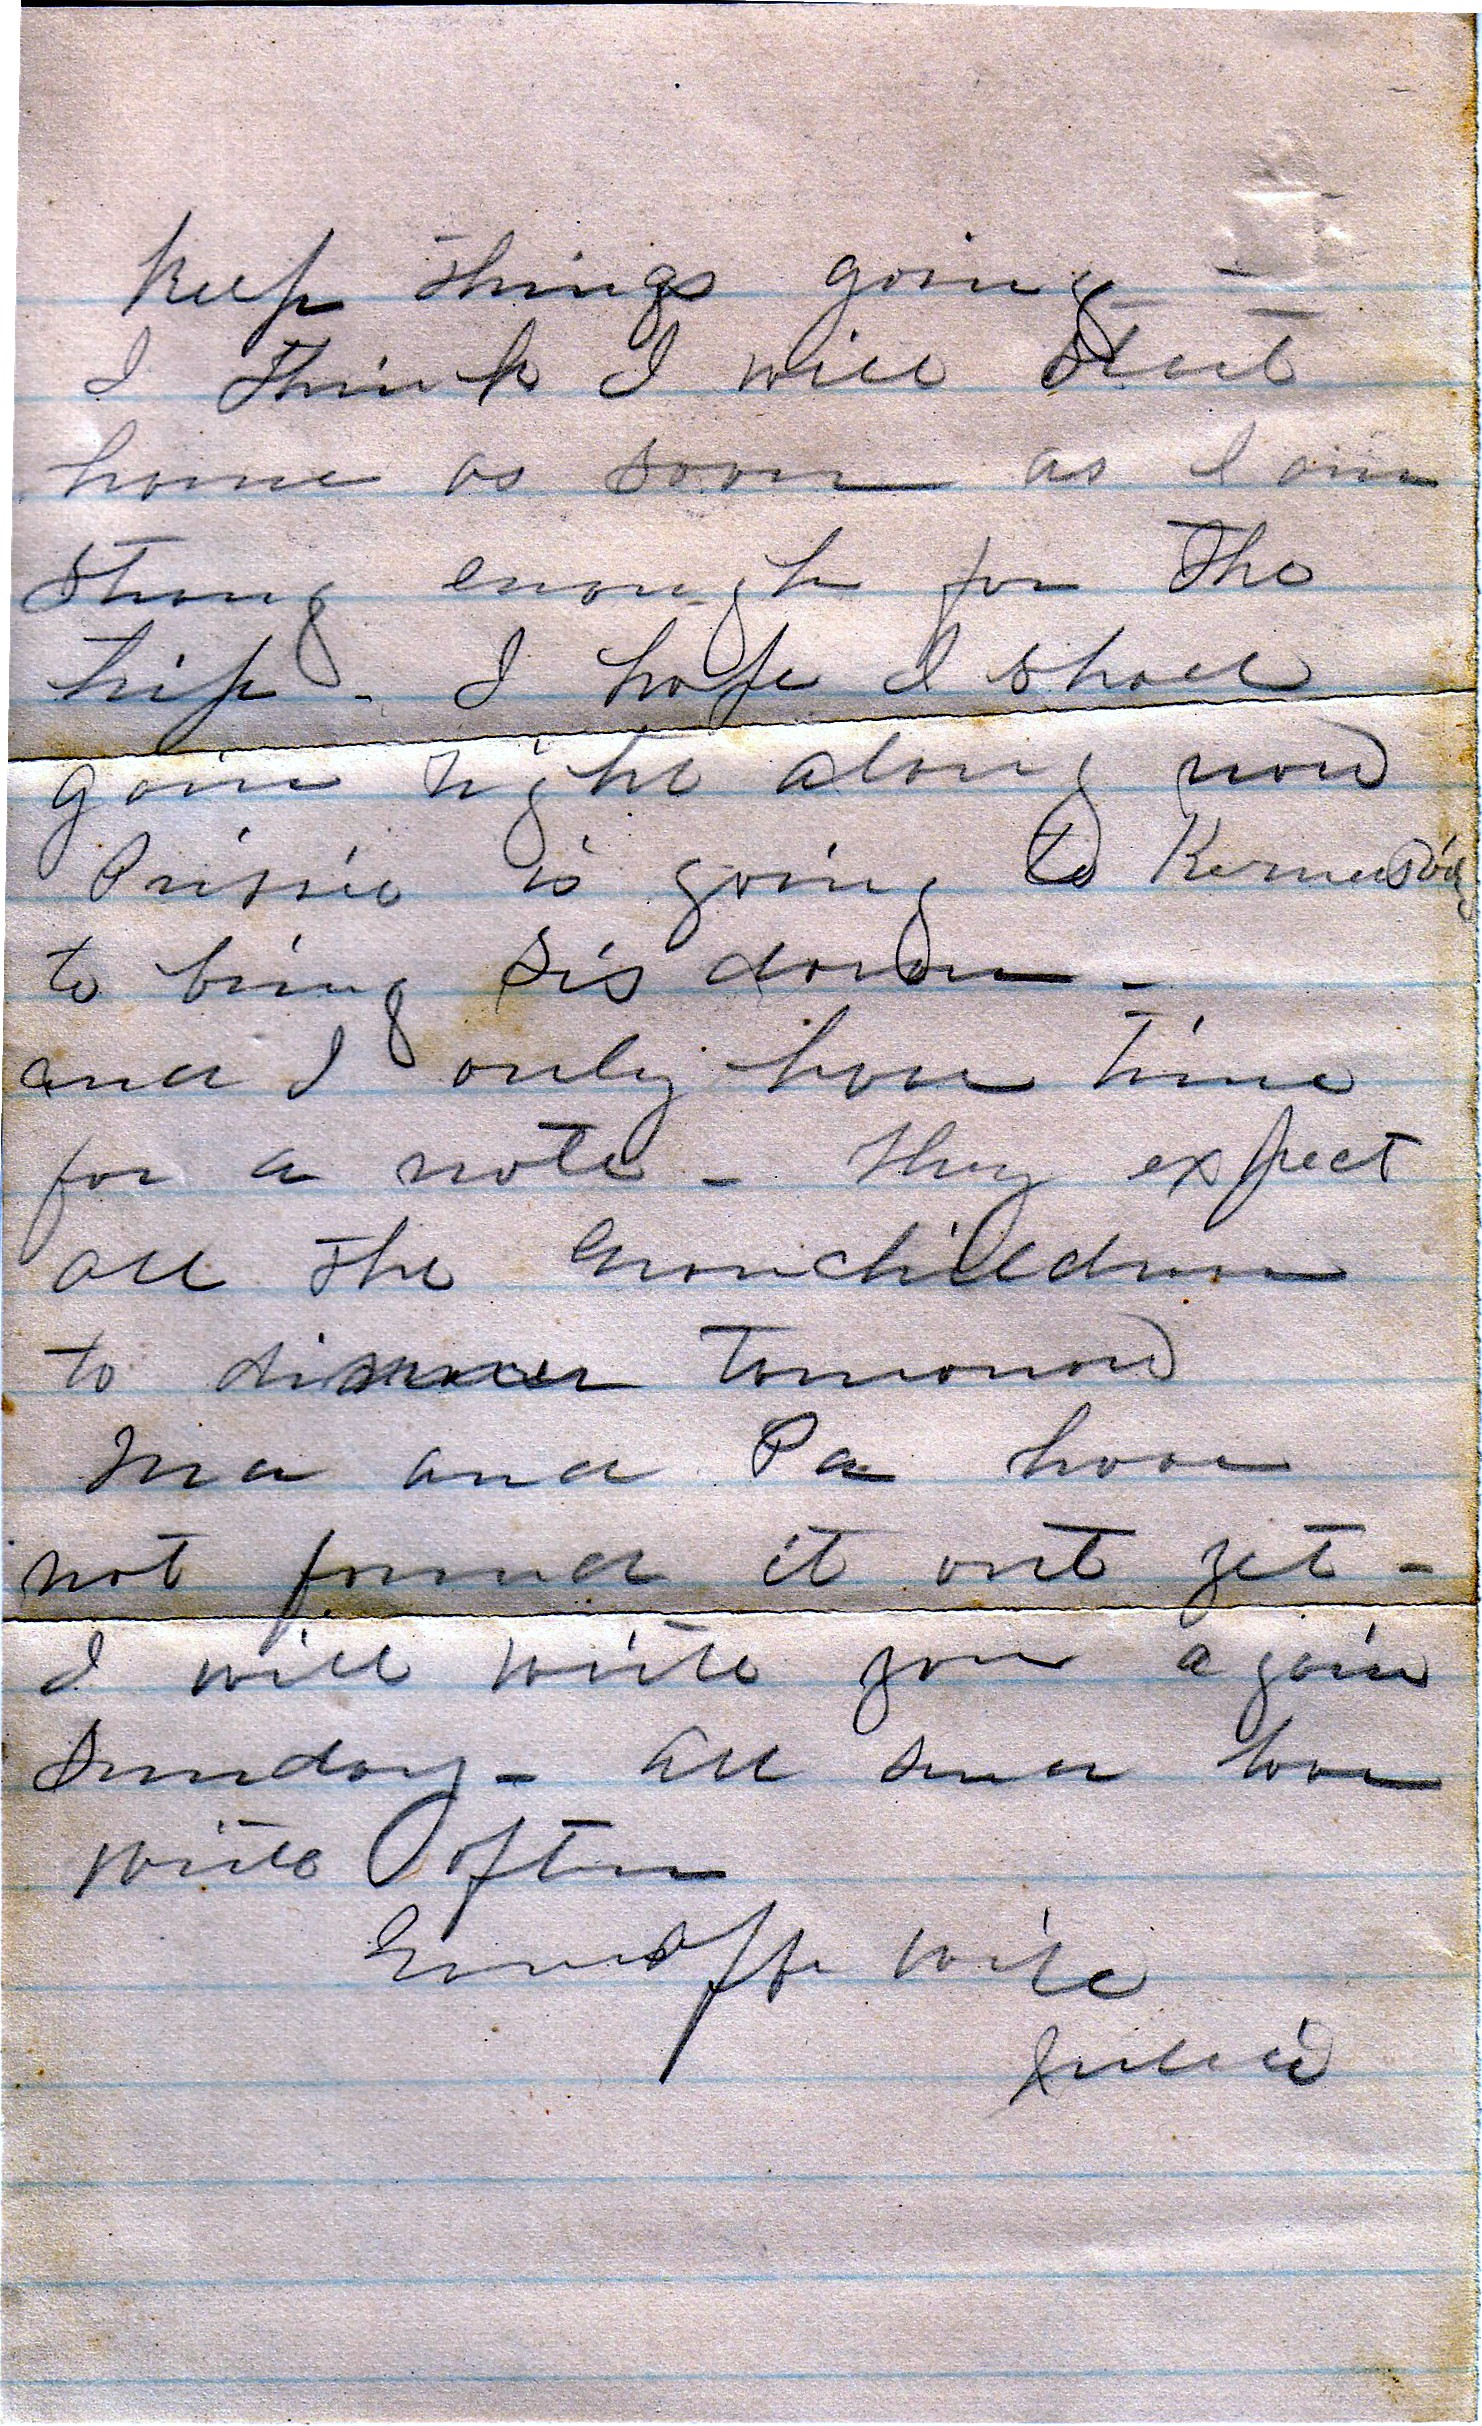 Keep things going -
I think I will start
home as soon as I am
strong enough for the
trip - I hope I shall
gain right along now
Prissie is going to
to bring Sis down -
and I only have time
for a note - They expect
all the Granchilldren
to dinner tomorrow
Ma and Pa have
not found it out yet -
I will write you again
Sunday - All send love
write often
Your aff wife
Julia